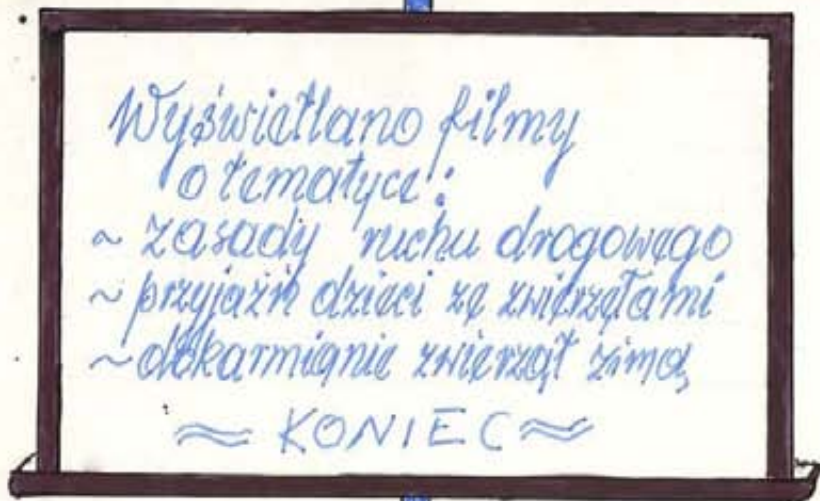 Wyświetlano filmy
o tematyce:
~ zasady ruchu drogowego
~ przyjaźń dzieci ze zwierzętami
~ dokarmianie zwierząt zimą
≈ KONIEC ≈